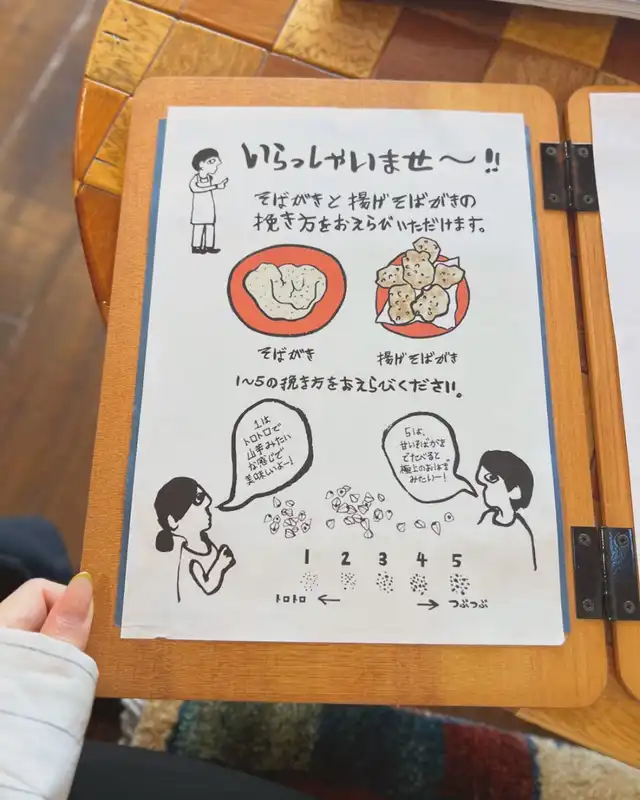 いらっしゃいませ〜!!
そばがきと揚げそばがきの
挽き方をおえらびいただけます。
そばがき
揚げそばがき
1〜5の挽き方をおえらびください。
1は
トロトロで
山芋みたい
な感じで
美味しいよー!
5は、
甘いそばがきを
でたべると
極上のおはぎ
みたいー!
1 2 3 4 5
トロトロ ← → つぶつぶ